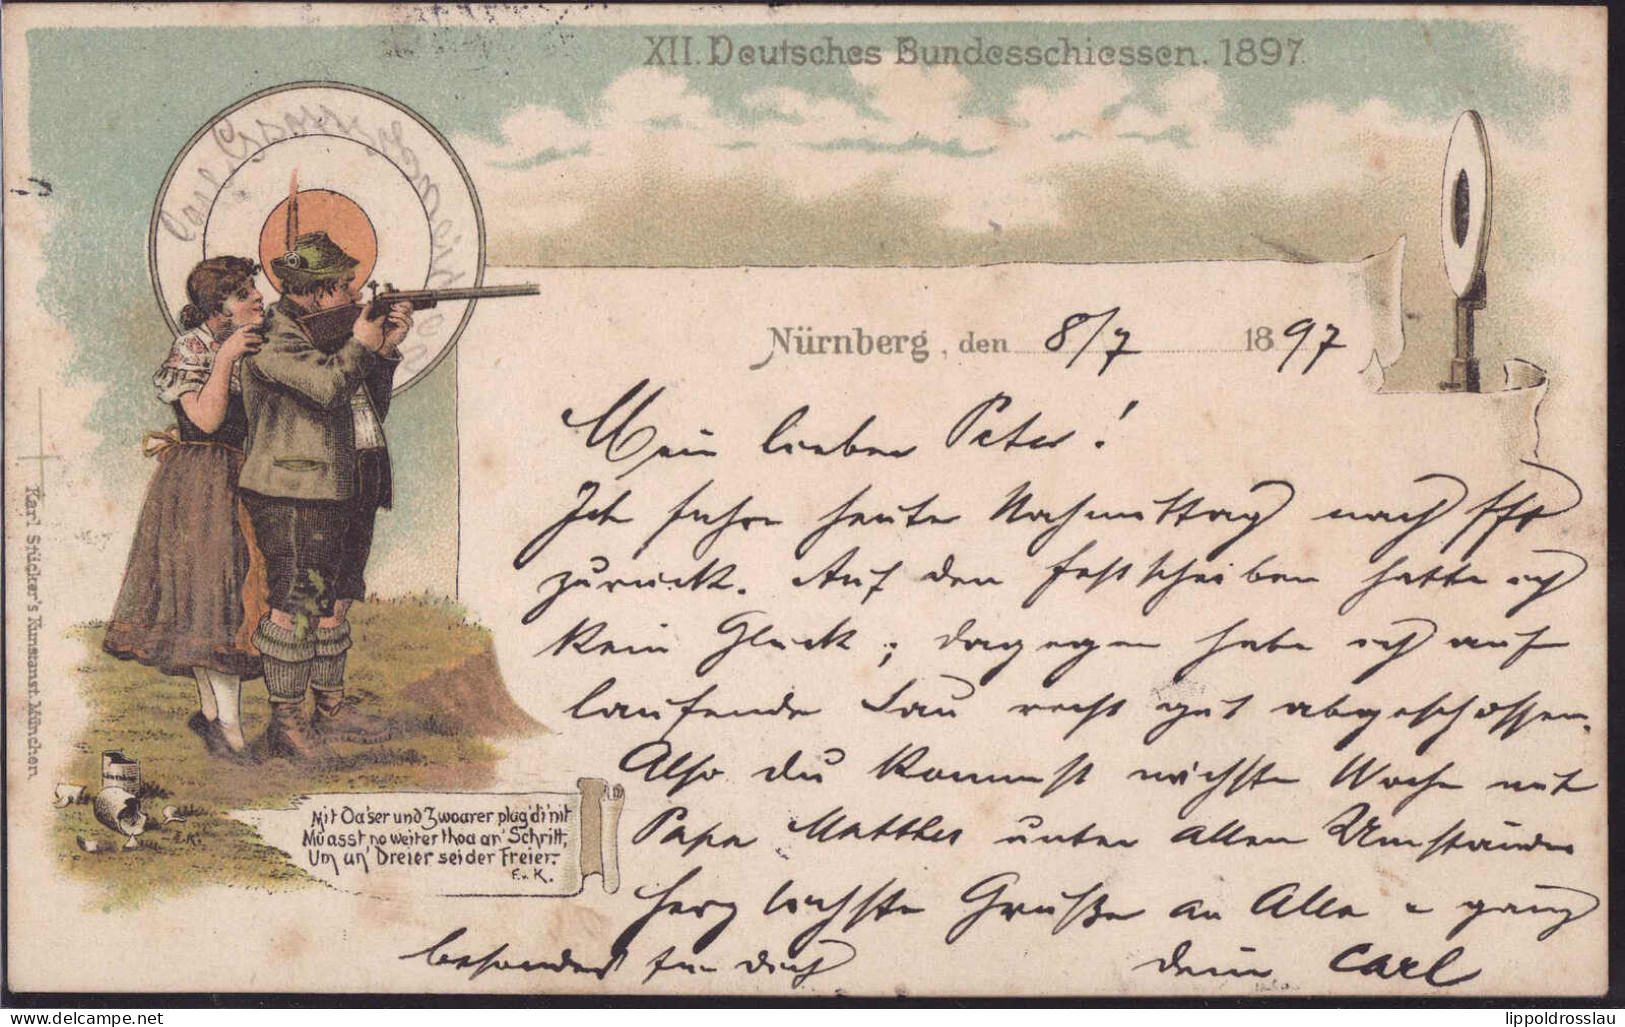 XII. Deutsches Bundesschiessen. 1897.
Nürnberg, den 8/7 1897
Mein lieber Peter!
Ich fahre heute Nachmittag nach Fft
zurück. Auf den Festscheiben hatte ich
kein Glück; dagegen habe ich auf
laufende Sau recht gut abgeschossen.
Also du kommst nächste Woche mit
Papa Matthes unter allen Umständen
herzlichste Grüße an Alle u ganz
besonders für dich dein Carl
Mit Oa'ser und Zwoarer plag' di' nit
Muasst no weiter thoa an' Schritt,
Um an' Dreier sei der Freier.
E. v. K.
E.K.
Karl Stücker's Kunstanst. München.
Carl
delcampe.net
lippoldrosslau